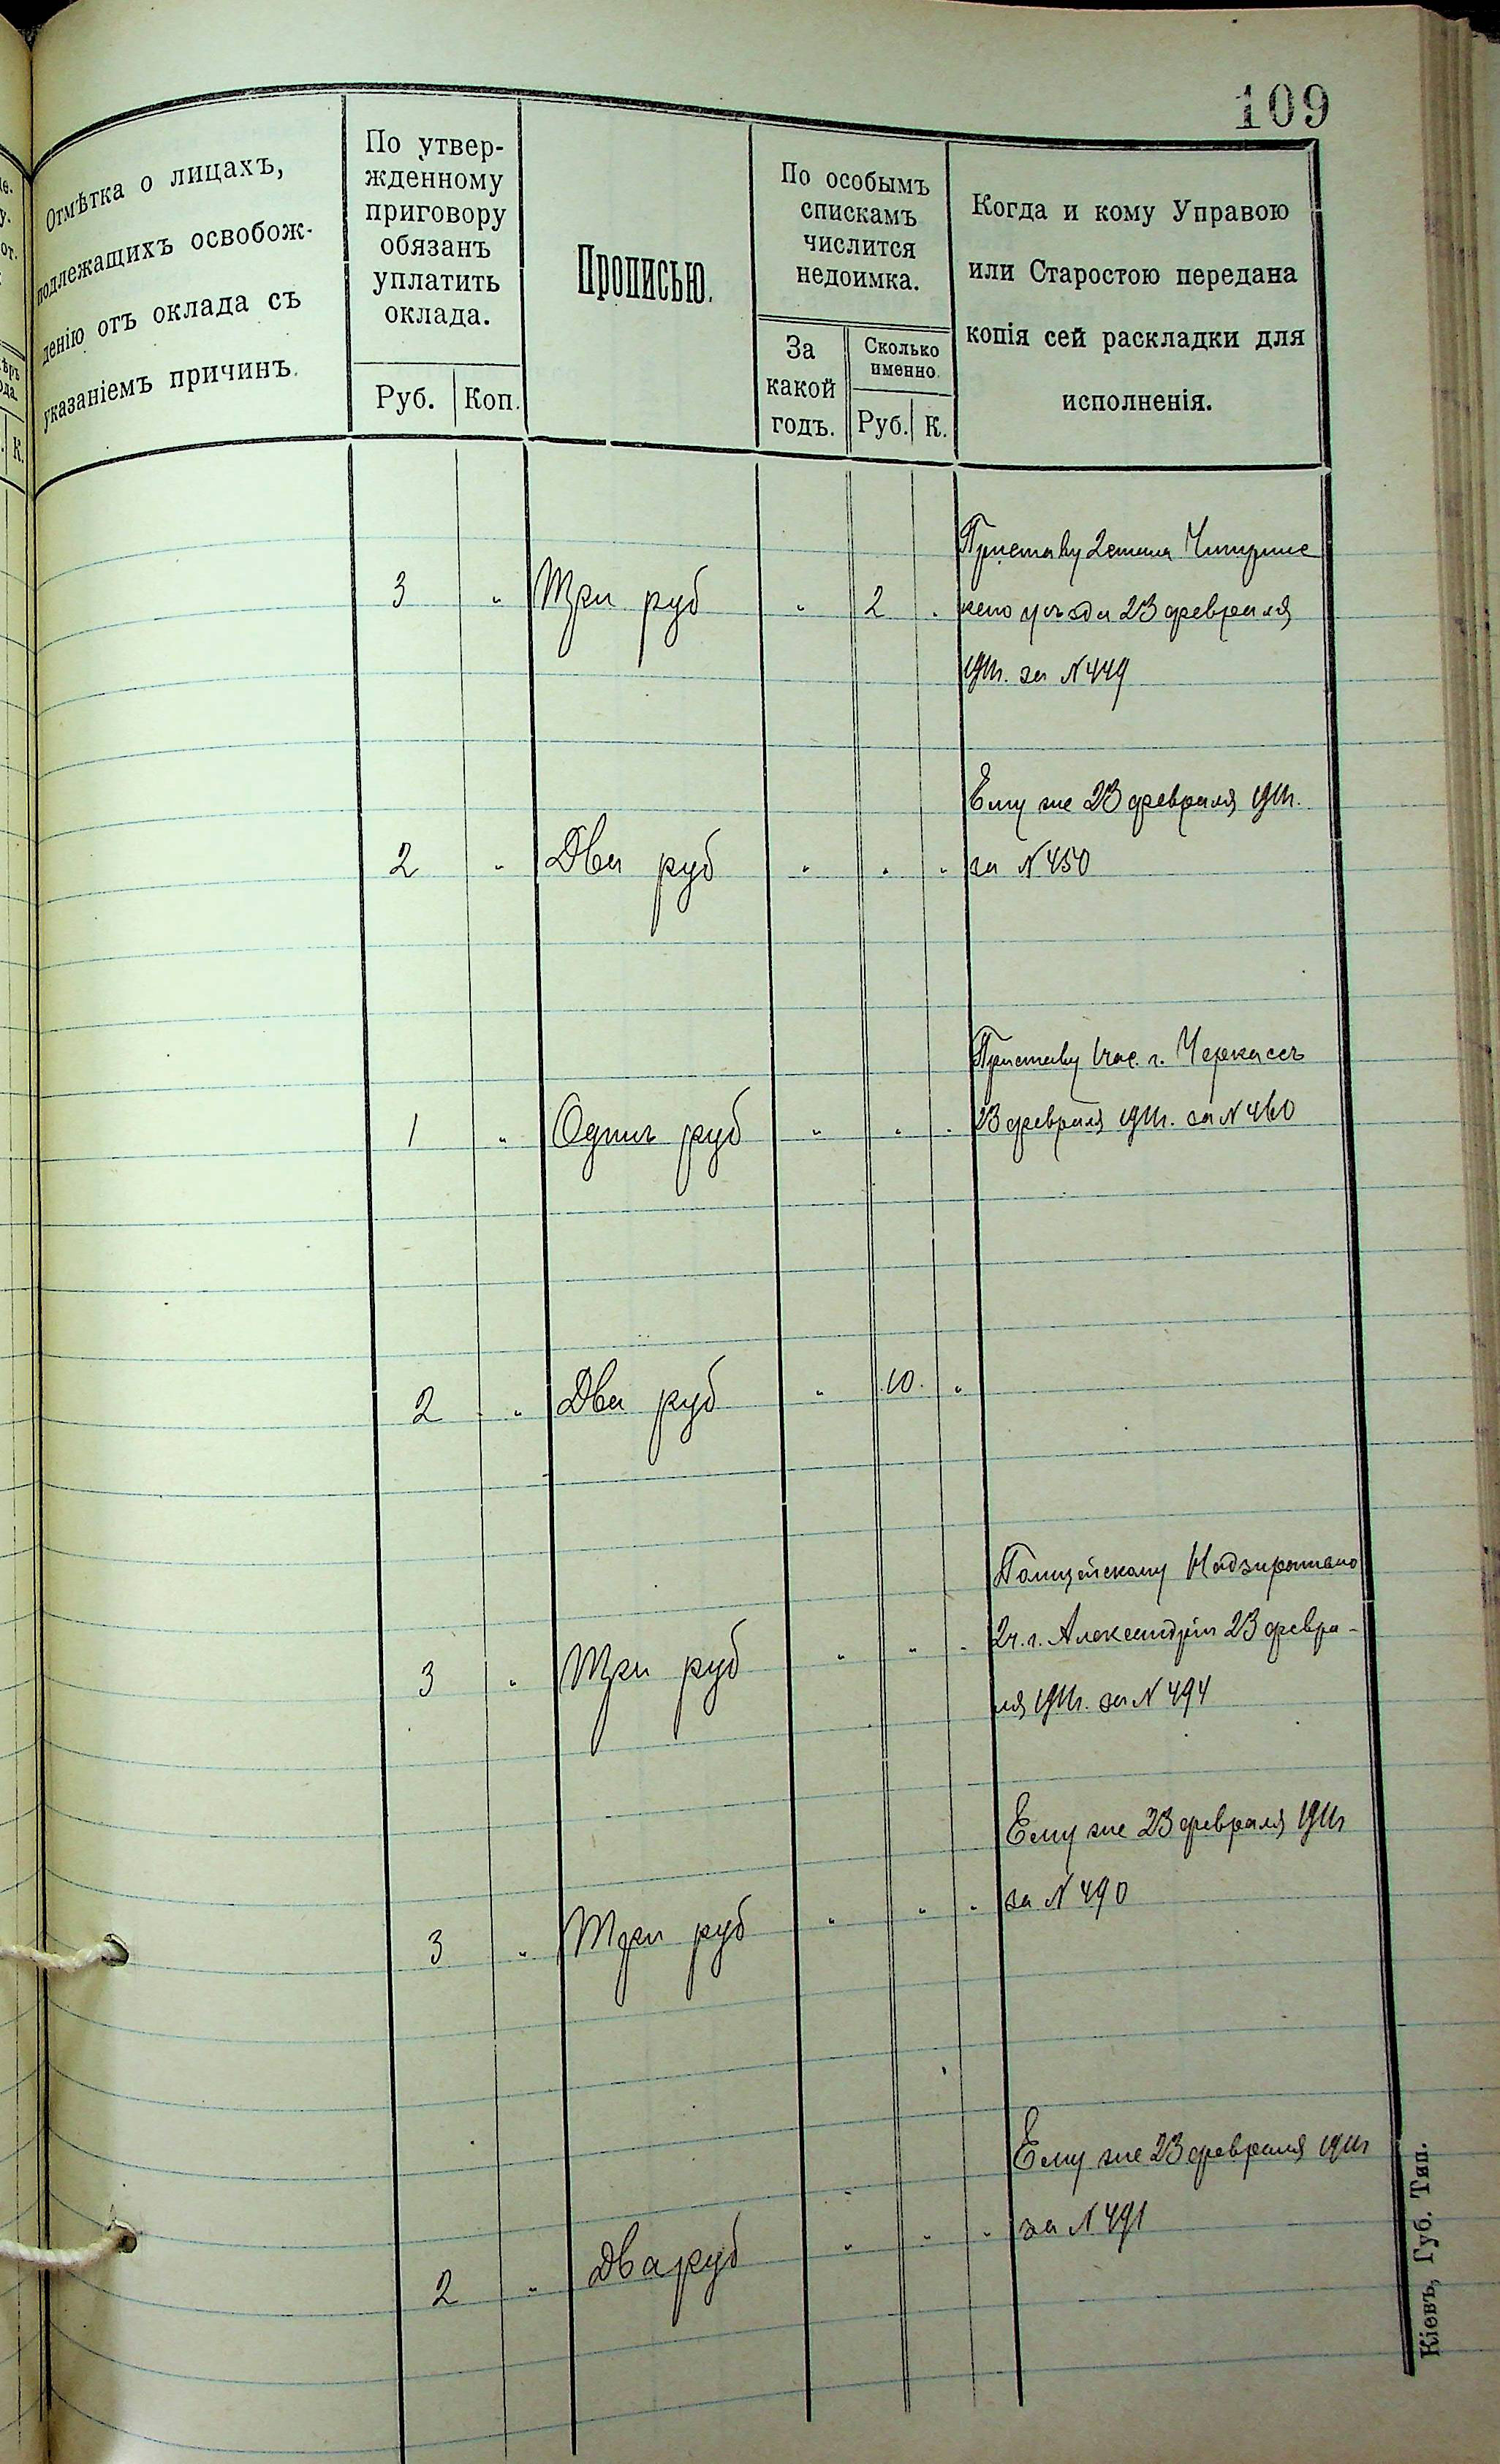 109
Отмѣтка о лицахъ,
подлежащихъ освобож-
денію отъ оклада съ
указаніемъ причинъ.
По утвер-
жденному
приговору
обязанъ
уплатить
оклада.
Руб. Коп.
Прописью.
По особымъ
спискамъ
числится
недоимка.
За
какой
годъ.
Сколько
именно.
Руб. К.
Когда и кому Управою
или Старостою передана
копія сей раскладки для
исполненія.
Приставу 2 стана Чигирин
3 " Три руб " 2 " скаго уѣзда 23 февраля
1911г. за N 449
Ему же 23 февраля 1911г.
2 " Два руб " " " за N 450
Приставу 1 час. г. Черкассъ
1 " Одинъ руб " " " 23 февраля 1911г. за N 460
2 " Два руб " 10 "
Полицейскому Надзирателю
3 " Три руб " " " 2 ч. г. Александріи 23 февра-
ля 1911г. за N 494
Ему же 23 февраля 1911г
3 " Три руб " " " за N 490
Ему же 23 февраля 1911г
2 " Два руб " " " за N 491
Кіевъ, Губ. Тип.